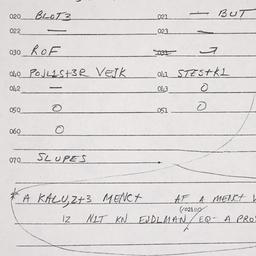 020 BLOT3 021 — BUT
022 — 023 —
030 ROF
040 POJL1S+3R VEJK 041 STES+K1
042 — 043 O
050 O 051 O
060 O
070 SLUPES
* A KALU,2+3 MENCT AF A MENCT
12 N1T KN EJDLMAN/EQ- A PRO